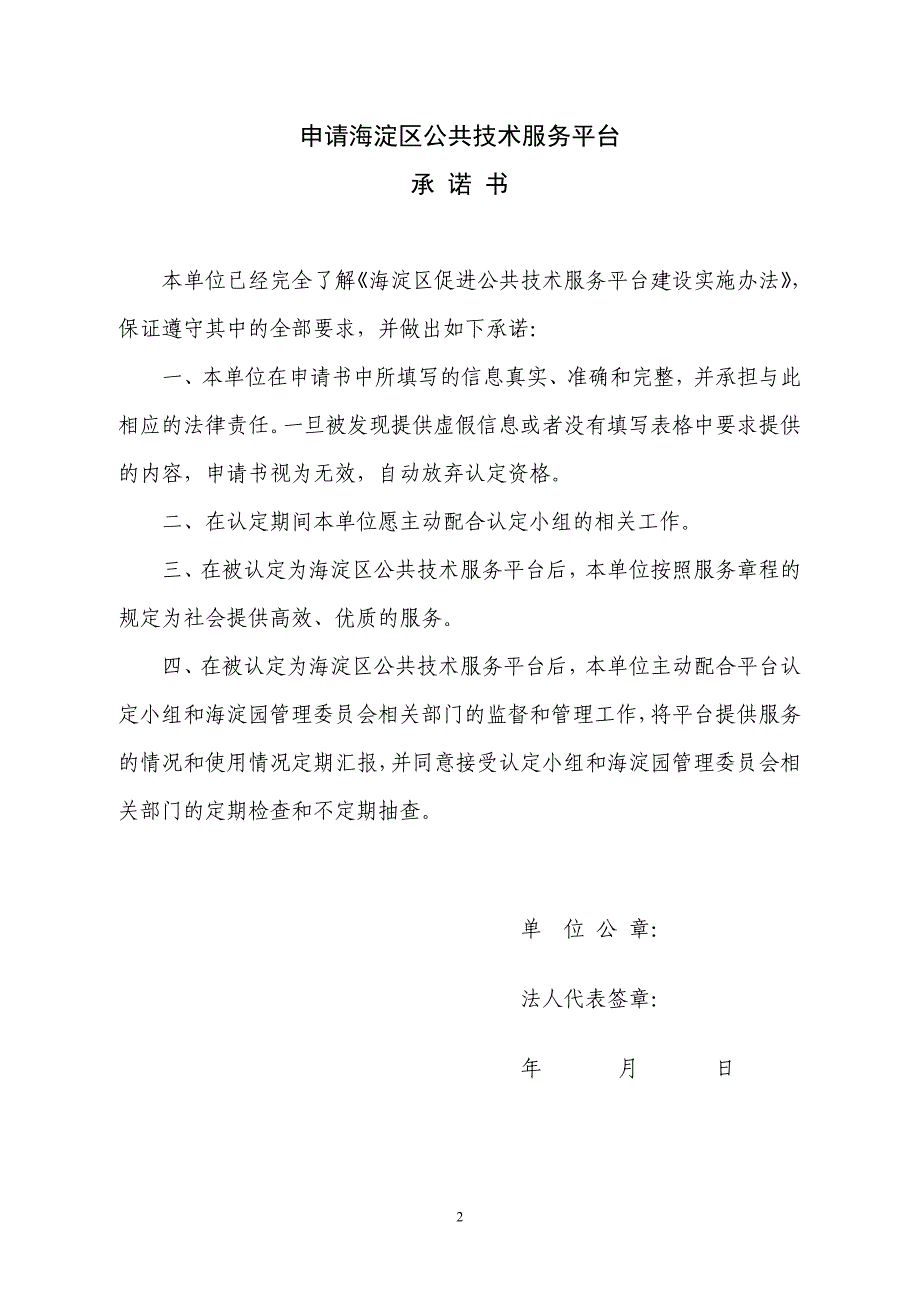 申请海淀区公共技术服务平台
承 诺 书
本单位已经完全了解《海淀区促进公共技术服务平台建设实施办法》，
保证遵守其中的全部要求，并做出如下承诺：
一、本单位在申请书中所填写的信息真实、准确和完整，并承担与此
相应的法律责任。一旦被发现提供虚假信息或者没有填写表格中要求提供
的内容，申请书视为无效，自动放弃认定资格。
二、在认定期间本单位愿主动配合认定小组的相关工作。
三、在被认定为海淀区公共技术服务平台后，本单位按照服务章程的
规定为社会提供高效、优质的服务。
四、在被认定为海淀区公共技术服务平台后，本单位主动配合平台认
定小组和海淀园管理委员会相关部门的监督和管理工作，将平台提供服务
的情况和使用情况定期汇报，并同意接受认定小组和海淀园管理委员会相
关部门的定期检查和不定期抽查。
单 位 公 章：
法人代表签章：
年 月 日
2